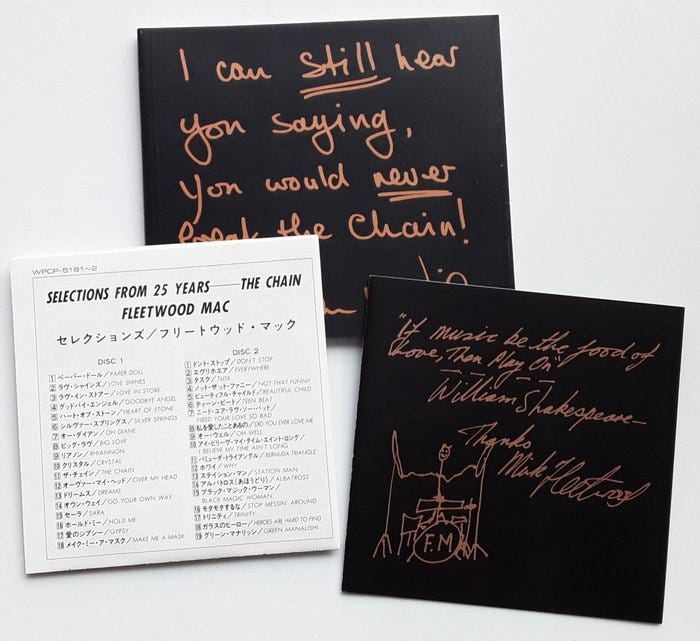 I can still hear
you saying,
you would never
break the Chain!
WPCP-5181~2
SELECTIONS FROM 25 YEARS——THE CHAIN
FLEETWOOD MAC
セレクションズ/フリートウッド・マック
DISC 1
1 ペーパー・ドール/PAPER DOLL
2 ラヴ・シャインズ/LOVE SHINES
3 ラヴ・イン・ストアー/LOVE IN STORE
4 グッドバイ・エンジェル/GOODBYE ANGEL
5 ハート・オブ・ストーン/HEART OF STONE
6 シルヴァー・スプリングス/SILVER SPRINGS
7 オー・ダイアン/OH DIANE
8 ビッグ・ラヴ/BIG LOVE
9 リアノン/RHIANNON
10 クリスタル/CRYSTAL
11 ザ・チェイン/THE CHAIN
12 オーヴァー・マイ・ヘッド/OVER MY HEAD
13 ドリームス/DREAMS
14 オウン・ウェイ/GO YOUR OWN WAY
15 セーラ/SARA
16 ホールド・ミー/HOLD ME
17 愛のジプシー/GYPSY
18 メイク・ミー・ア・マスク/MAKE ME A MASK
DISC 2
1 ドント・ストップ/DON'T STOP
2 エヴリホエア/EVERYWHERE
3 タスク/TUSK
4 ノット・ザット・ファニー/NOT THAT FUNNY
5 ビューティフル・チャイルド/BEAUTIFUL CHILD
6 ティーン・ビート/TEEN BEAT
7 ニード・ユア・ラヴ・ソー・バッド/
NEED YOUR LOVE SO BAD
8 私を愛したことあるの/DID YOU EVER LOVE ME
9 オー・ウェル/OH WELL
10 アイ・ビリーヴ・マイ・タイム・エイント・ロング/
I BELIEVE MY TIME AIN'T LONG
11 バミューダ・トライアングル/BERMUDA TRIANGLE
12 ホワイ/WHY
13 ステイション・マン/STATION MAN
14 アルバトロス(あほうどり)/ALBATROSS
15 ブラック・マジック・ウーマン/
BLACK MAGIC WOMAN
16 モタモタするな/STOP MESSIN' AROUND
17 トリニティ/TRINITY
18 ガラスのヒーロー/HEROES ARE HARD TO FIND
19 グリーン・マナリッシ/GREEN MANALISHI
"If music be the food of
Love, Then Play On"
William Shakespeare—
Thanks
Mick Fleetwood
F.M